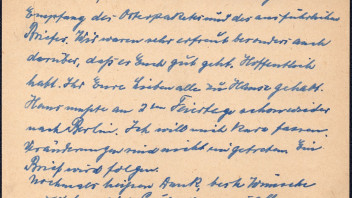 Empfang des Osterpakets und des ausführlichen
Briefes. Wir waren sehr erfreut besonders auch
darüber, dass es Euch gut geht. Hoffentlich
habt Ihr Eure Lieben alle zu Hause gehabt.
Hans mußte am 2ten Feiertage schon wieder
nach Berlin. Ich will mit fassen.
Veränderungen sind nicht eingetreten. Ein
Brief wird folgen.
Nochmals heißen Dank, beste Wünsche